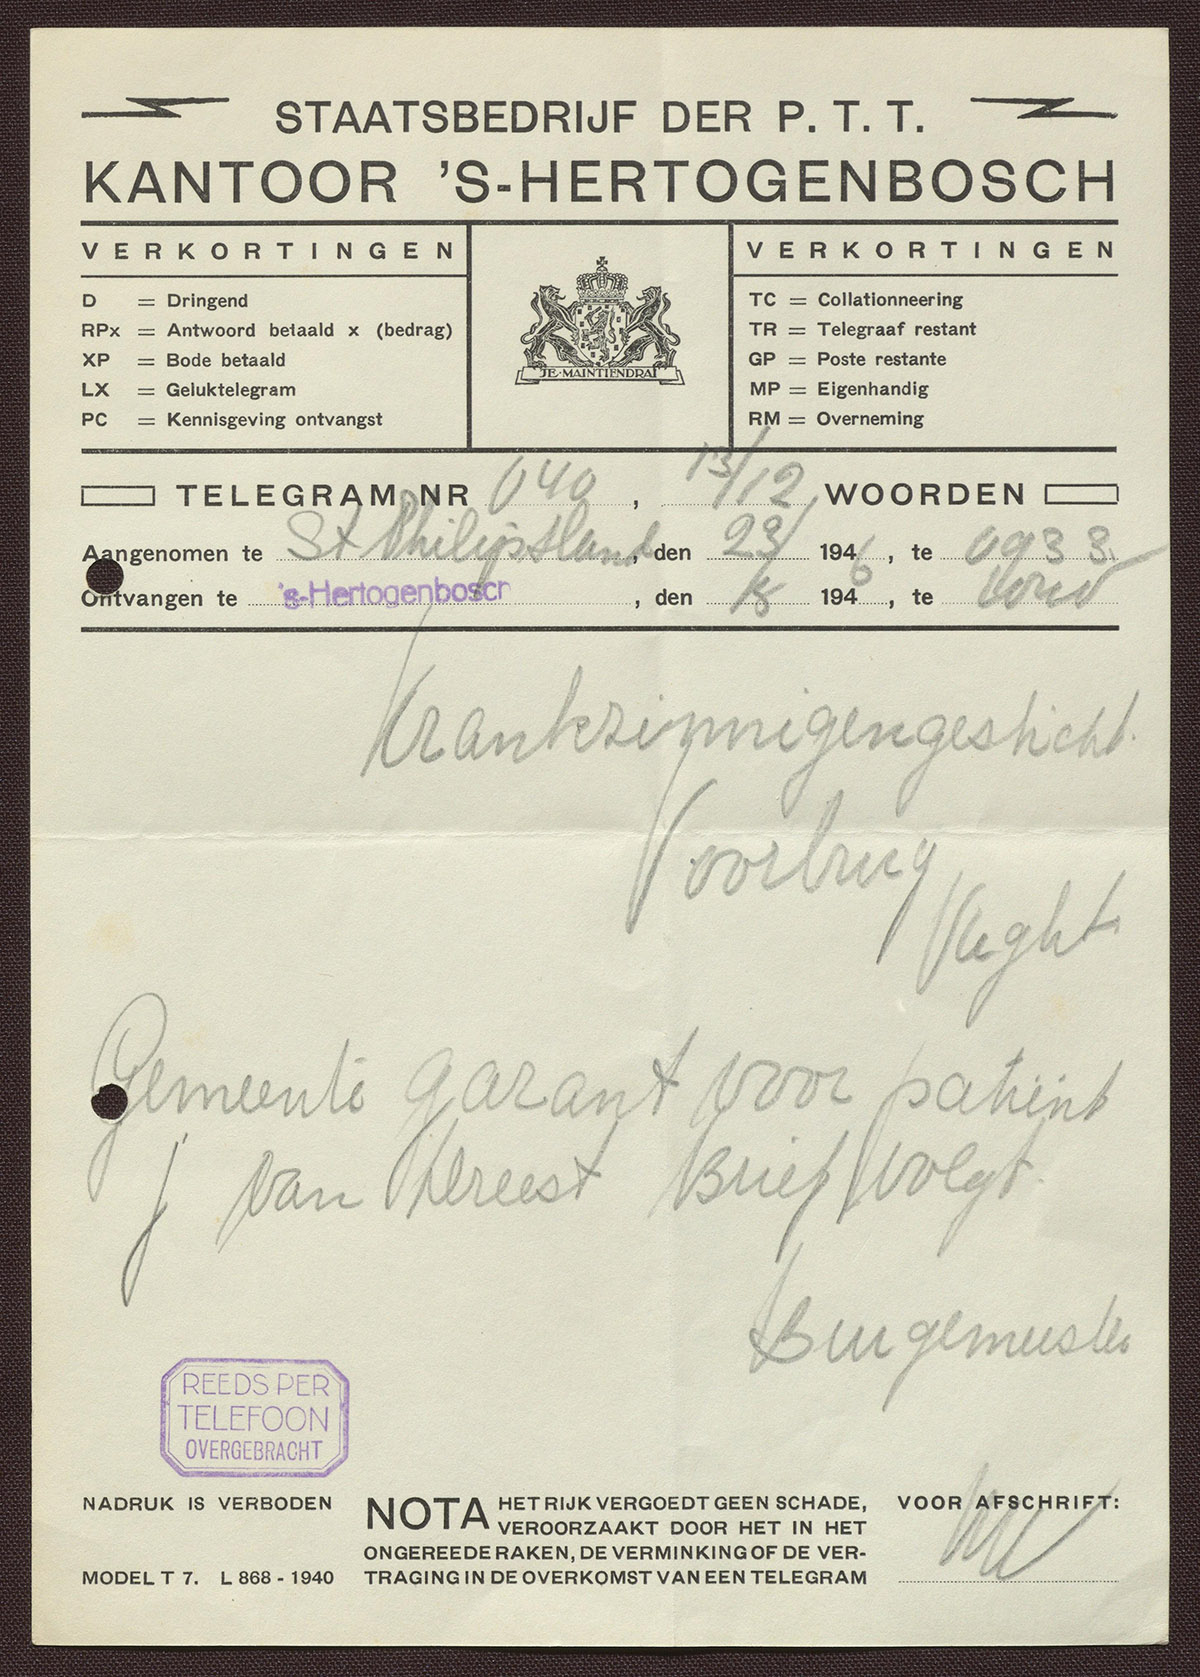 STAATSBEDRIJF DER P. T. T.
KANTOOR 'S-HERTOGENBOSCH
VERKORTINGEN
D = Dringend
RPx = Antwoord betaald x (bedrag)
XP = Bode betaald
LX = Geluktelegram
PC = Kennisgeving ontvangst
JE·MAINTIENDRAI
VERKORTINGEN
TC = Collationneering
TR = Telegraaf restant
GP = Poste restante
MP = Eigenhandig
RM = Overneming
TELEGRAM NR 040, 13/12 WOORDEN
Aangenomen te St Philipsland, den 23/ 1946, te 0933
Ontvangen te 's-Hertogenbosch, den 1946, te
Krankzinnigengesticht
Voorburg
Vught
Gemeente garant voor patient
J van Brief volgt.
Burgemeester
REEDS PER
TELEFOON
OVERGEBRACHT
NADRUK IS VERBODEN
MODEL T 7. L 868 - 1940
NOTA HET RIJK VERGOEDT GEEN SCHADE,
VEROORZAAKT DOOR HET IN HET
ONGEREEDE RAKEN, DE VERMINKING OF DE VER-
TRAGING IN DE OVERKOMST VAN EEN TELEGRAM
VOOR AFSCHRIFT: